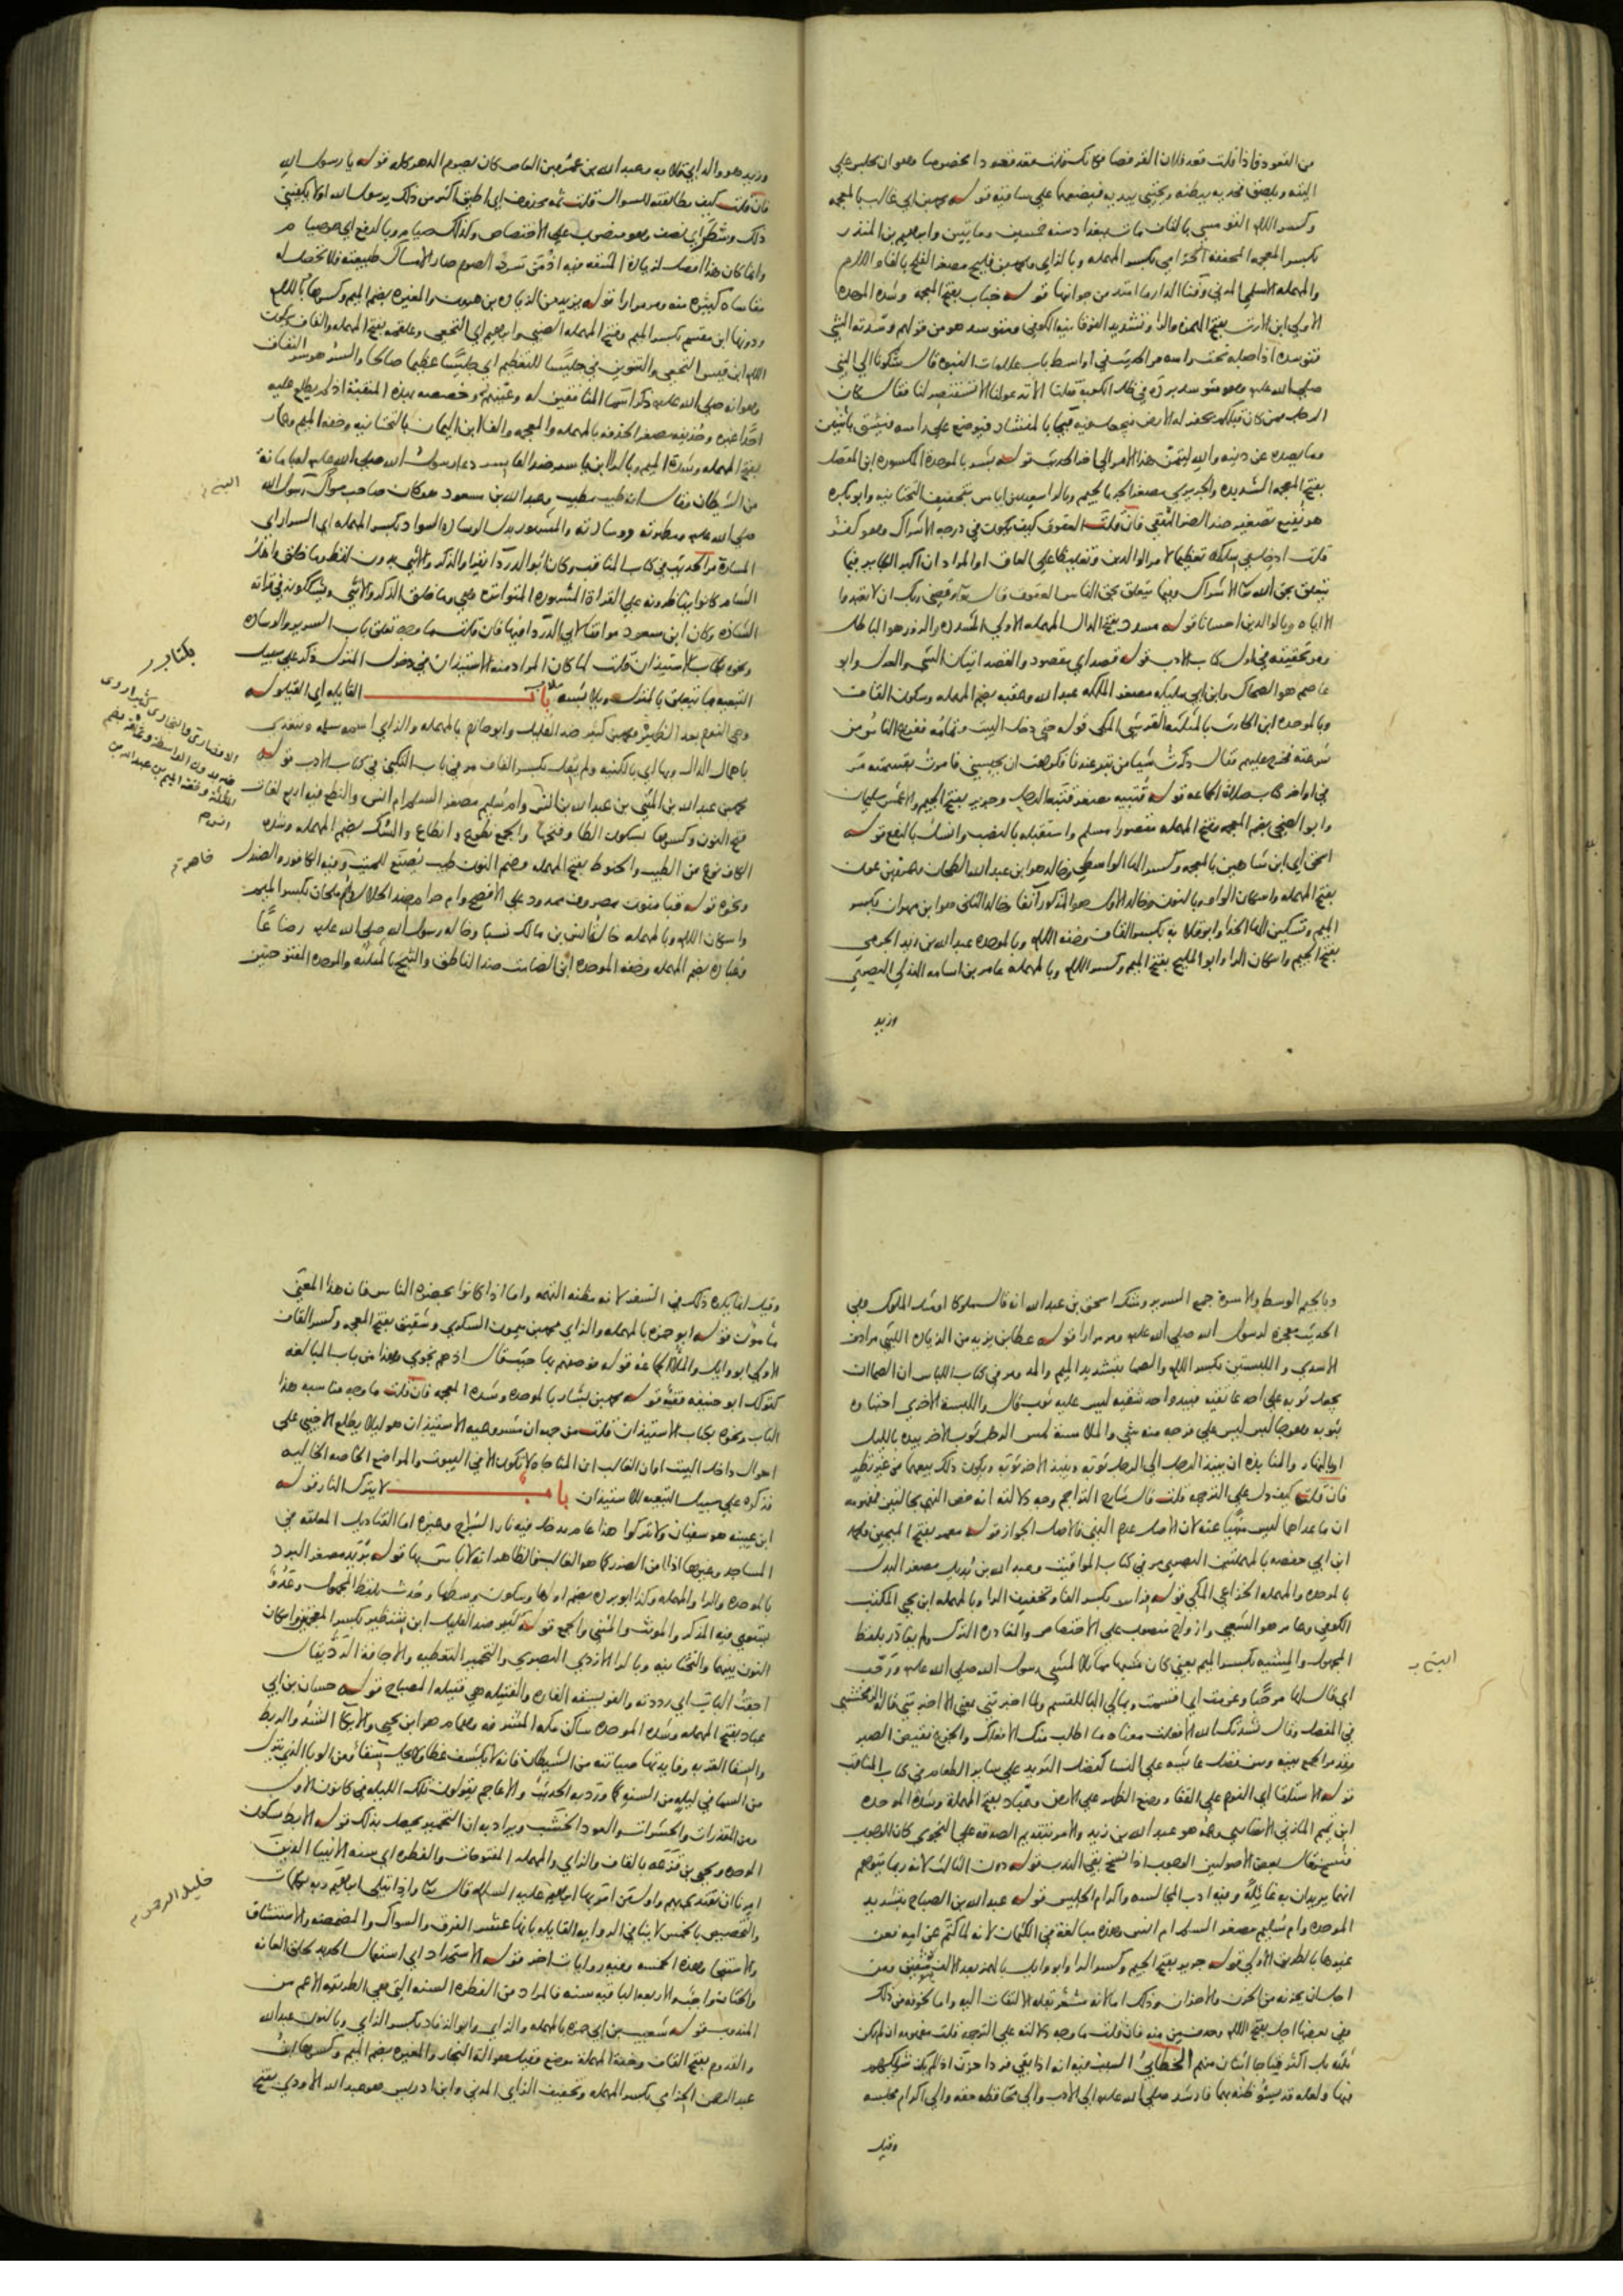 من القعود فاذا قلت قعد فلان القرفصا فكانك قلت قعد قعودا مخصوصا وهو ان يجلس على
اليته ويلصق فخذيه ببطنه ويحتبي بيديه فيضعهما على ساقيه قوله محمد بن ابي غالب بالمعجمه
وكسر اللام القومسي بالقاف مات ببغداد سنه خمسين ومايتين وابراهيم بن المنذر
بكسر المعجمه المخففه الحزامي بكسر المهمله وبالزاي ومحمد بن فليح مصغر الفلح بالفاء واللام
والمهمله الاسلمي المدني وفنا الدار ما امتد من جوانبها قوله خباب بفتح المعجمه وشده الموحده
الاولى ابن الارت بفتح الهمزه والراء وتشديد الفوقانيه الكوفي ومتوسد هو من قولهم وسدته الشي
فتوسده اذا جعله تحت راسه مر الحديث في اواسط باب علامات النبوه قال شكونا الى النبي
صلى الله عليه وهو متوسد برده في ظل الكعبه قلنا الا تدعو لنا الا تستنصر لنا فقال كان
الرجل ممن كان قبلكم يحفر له الارض فيجعل فيه فيجا بالمنشار فيوضع على راسه فيشق باثنين
وما يصده عن دينه والله ليتمن هذا الامر الى اخر الحديث قوله بشر بالموحده المكسوره ابن المفضل
بفتح المعجمه الشديده والجريري مصغر الجر بالجيم وبالراء سعيد بن اياس بتخفيف التحتانيه وابو بكره
هو نفيع تصغير ضد الضر الثقفي فان قلت العقوق كيف يكون في درجه الاشراك وهو كفر
قلت ادخل في سلكه تعظيما لامر الوالدين وتغليظا على العاق او المراد ان اكبر الكباير فيما
يتعلق بحق الله تعالى الاشراك وفيما يتعلق بحق الناس العقوق قال تعالى وقضى ربك ان لا تعبدوا
الا اياه وبالوالدين احسانا قوله مسدد بفتح الدال المهمله الاولى المشدده والزور هو الباطل
ومر تحقيقه في اول كتاب الادب قوله قصد اي مقصود والقصد اتيان الشي والعدل وابو
عاصم هو الضحاك وابن ابي مليكه مصغر الملكه عبد الله وعقبه بضم المهمله وسكون القاف
وبالموحده ابن الحارث بالمثلثه القرشي المكي قوله حتى دخل البيت وتمامه ففزع الناس من
سرعته فخرج عليهم فقال ذكرت شيا من تبر عندنا فكرهت ان يحبسني فامرت بقسمته مر
في اواخر كتاب صلاه الجماعه قوله قتيبه مصغر قتبه الرحل وجرير بفتح الجيم والاعمش سليمان
وابو الضحى بضم المعجمه وفتح المهمله مقصورا مسلم واستقبله بالنصب وانسل بالرفع قوله
اسحق اي ابن شاهين بالمعجمه وكسر الها الواسطي وخالد هو ابن عبد الله الطحان وعمرو بن عون
بفتح المهمله واسكان الواو وبالنون وخالد الاول هو المذكور آنفا وخالد الثاني هو ابن مهران بكسر
الميم وتسكين الها الحذا وابو قلابه بكسر القاف وخفه اللام وبالموحده عبد الله بن زيد الجرمي
بفتح الجيم واسكان الراء وابو المليح بفتح الميم وكسر اللام وبالمهمله عامر بن اسامه الهذلي البصري
وزيد
وزيد هو والد ابي قلابه وعبد الله بن عمرو بن العاص كان يصوم الدهر كله قوله يا رسول الله
فان قلت كيف مطابقته للسوال قلت ثمه محذوف اي اطيق اكثر من ذلك يا رسول الله او لا يكفيني
ذلك وشطر اي نصف وهو منصوب على الاختصاص وكذلك صيام وبالرفع اي هو صيام
وانما كان هذا افضل لزياده المشقه فيه اذ من سرد الصوم صار الامساك طبيعته فلا يحصل له
مقاساه كبيره منه ومر مرارا قوله يزيد من الزياده بن هرون والمغيره بضم الميم وكسرها باللام
ودونها ابن مقسم بكسر الميم وفتح المهمله الضبي وابراهيم اي النخعي وعلقمه بفتح المهمله والقاف وسكون
اللام ابن قيس النخعي والتنوين في جليسا للتعظيم اي جليسا عظيما صالحا والسر هو سر النفاق
وهو انه صلى الله عليه ذكر اسما المنافقين له وعينهم وخصصه بهذه المنقبة اذ لم يطلع عليه
احدا غيره وحذيفه مصغر الحذفه بالمهمله والمعجمه والفا ابن اليمان بالتحتانيه وخفه الميم وعمار
بفتح المهمله وشدة الميم وبالراء ابن ياسر ضد العاسر دعا رسول الله صلى الله عليه له بامانه
من الشيطان وقال انه طيب مطيب وعبد الله بن مسعود هو كان صاحب سواك رسول الله
صلى الله عليه ومطهرته ووسادته والمشهور بدل الوساده السواد بكسر المهمله اي السرار اي
المساره مر الحديث في كتاب المناقب وكان ابو الدردا يقرا والذكر والانثى بدون لفظ وما خلق واهل
الشام كانوا يناظرونه على القراة المشهوره المتواتره وهي وما خلق الذكر والانثى ويشككونه في قراته
الشاذه وكان ابن مسعود موافقا لابي الدردا فيها فان قلت ما وجه تعلق باب السرير والوساده
ونحوه بكتاب الاستيذان قلت لما كان المراد منه الاستيذان في دخول المنزل ذكر على سبيل
التبعيه ما يتعلق بالمنزل ويلابسه باب القايله اي القيلوله
وهي النوم بعد الظهيره ومحمد بن كثير ضد القليل وابو حازم بالمهمله والزاي اسمه سلمه ويتغدى
باهمال الدال وبها اي بالكنيه ولم يقل بكسر القاف مر في باب التكني في كتاب الادب قوله
محمد بن عبد الله بن المثنى بن عبد الله بن انس وام سليم مصغر السلم ام انس والنطع فيه اربع لغات
فتح النون وكسرها بسكون الطا وفتحها والجمع نطوع وانطاع والسك بضم المهمله وشده
الكاف نوع من الطيب والحنوط بفتح المهمله وضم النون طيب يصنع للميت وفيه الكافور والصندل
ونحوه قوله قبا منون مصروف ممدود على الافصح وام حرام ضد الحلال بنت ملحان بكسر الميم
واسكان اللام وبالمهمله خاله انس بن مالك نسبا وخاله رسول الله صلى الله عليه رضاعا
وعباده بضم المهمله وخفه الموحده ابن الصامت ضد الناطق والثبج بالمثلثه والموحده المفتوحتين
وبالجيم الوسط والاسرة جمع السرير وشك اسحق بن عبد الله انه قال ملوكا او مثل الملوك وفي
الحديث معجزة لرسول الله صلى الله عليه ومر مرارا قوله عطا بن يزيد من الزياده الليثي مرادف
الاسدي واللبستين بكسر اللام والصما بتشديد الميم والمد ومر في كتاب اللباس ان الصما ان
يجعل ثوبه على احد عاتقيه فيبدو احد شقيه ليس عليه ثوب قال واللبسة الاخرى احتباوه
بثوبه وهو جالس ليس على فرجه منه شي والملامسه لمس الرجل ثوب الاخر بيده بالليل
او بالنهار والمنابذه ان ينبذ الرجل الى الرجل ثوبه وينبذ الاخر ثوبه ويكون ذلك بيعهما من غير نظر
فان قلت كيف دل على الترجمه قلت قال شارح التراجم وجه دلالته انه خص النهي بحالتين فمفهومه
ان ما عداهما ليس منهيا عنه لان الاصل عدم النهي فالاصل الجواز قوله معمر بفتح الميمين ومحمد
ابن ابي حفصه بالمهملتين البصري مر في كتاب المواقيت وعبد الله بن بديل مصغر البدل
بالموحده والمهمله الخزاعي المكي قوله فراس بكسر الفا وتخفيف الراء وبالمهمله ابن يحيى المكتب
الكوفي وعامر هو الشعبي وازواج منصوب على الاختصاص والمغادره الترك ولم يغادر بلفظ
المجهول والمشيه بكسر الميم يعني كان مشيها مماثلا لمشي رسول الله صلى الله عليه ورحب
اي قال لها مرحبا وعزمت اي اقسمت وبمالي البا للقسم ولما اخبرتني بمعنى الا اخبرتني قال الزمخشري
في المفصل وقال نشدتك الله الا فعلت معناه ما اطلب منك الا فعلك والجزع نقيض الصبر
ومر الجمع بينه وبين فضل عايشه على النسا كفضل الثريد على ساير الطعام في كتاب المناقب
قوله الاستلقا اي النوم على القفا ووضع الظهر على الارض وعباد بفتح المهملة وشدة الموحده
ابن تميم المازني الانصاري وعمه هو عبد الله بن زيد والامر بتقديم الصدقه على النجوى كان للوجوب
فنسخ فقال بعض الاصوليين الوجوب اذا نسخ بقي الندب قوله دون الثالث لانه ربما يتوهم
انهما يريدان به غائلة وفيه ادب المجالسه واكرام الجليس قوله عبد الله بن الصباح بتشديد
الموحده وام سليم مصغر السلم ام انس وهذه مبالغة في الكتمان لانه لما كتم عن امه فعن
غيرها بالطريق الاولى قوله جرير بفتح الجيم وكسر الراء وابو وايل بالهمز بعد الالف شقيق ومن
اجل ان يحزنه من الحزن والاحزان وذلك اما لانه مشعر بقله الالتفات اليه واما لخوفه من ذلك
وفي بعضها اجل بفتح اللام وحذف من منه فان قلت ما وجه دلالته على الترجمه قلت مفهومه ان لم يكن
ثلثه بل اكثر فيتناجا اثنان منهم الخطابي السبب فيه انه اذا بقي فردا حزن اذا لم يكن شريكهم
فيها ولعله قد يسئ ظنه بهما فارشد صلى الله عليه الى الادب والى محافظه حقه والى اكرام مجلسه
وقيل
وقيل انما يكره ذلك في السفر لانه مظنه التهمه واما اذا كانوا بحضرة الناس فان هذا المعنى
مامون قوله ابو حمزه بالمهمله والزاي محمد بن ميمون السكري وشقيق بفتح المعجمه وكسر القاف
الاولى ابو وايل والملا الجماعه قوله فوصفهم بها حيث قال اذ هم نجوى وهذا من باب المبالغه
كقولك ابو حنيفه فقه قوله محمد بن بشار بالموحده وشده المعجمه فان قلت ما وجه مناسبه هذا
الباب ونحوه بكتاب الاستيذان قلت من جهة ان مشروعيه الاستيذان هو ليلا يطلع الاجنبي على
احوال داخل البيت او ان الغالب ان المناجاه لا تكون الا في البيوت والمواضع الخاصه الخاليه
فذكره على سبيل التبعيه للاستيذان باب لا يترك النار قوله
ابن عيينه هو سفيان ولا تتركوا هذا عام يدخل فيه نار السراج وغيره اما القناديل المعلقه في
المساجد وغيرها اذا امن الضرر كما هو الغالب فالظاهر انه لا باس بها قوله بريد مصغر البرد
بالموحده والراء والمهمله وكذا ابو برده بضم اولها وسكون وسطها وحدث بلفظ المجهول وعدو
يستوي فيه المذكر والمونث والمثنى والجمع قوله كثير ضد القليل ابن شنظير بكسر المعجمتين واسكان
النون بينهما والتحتانيه وبالراء الازدي البصري والتخمير التغطيه والاجافة الرد يقال
اجفت الباب اي رددته والفويسقه الفاره والفتيله هي فتيله المصباح قوله حسان بن ابي
عباد بفتح المهمله وشده الموحده ساكن مكه المشرفه وهمام هو ابن يحيى والايكا الشد والربط
والسقا القربه وفايدتها صيانته من الشيطان فانه لا يكشف غطا ولا يحل سقا ومن الوبا الذي ينزل
من السما في ليله من السنه كما ورد به الحديث والاعاجم يقولون تلك الليله في كانون الاول
ومن المقذرات والحشرات والعود الخشب ويراد به ان التخمير يحصل بذلك قوله الابط بسكون
الموحده ويحيى بن قزعه بالقاف والزاي والمهمله المفتوحات والفطره اي سنه الانبيا الذين
امرنا ان نقتدي بهم واول من امر بها ابراهيم عليه السلام قال تعالى واذ ابتلى ابراهيم ربه بكلمات
والتخصيص بالخمس لا ينافي الروايه القايله بانها عشر الفرق والسواك والمضمضه والاستنشاق
والاستنجا وهذه الخمسه وفيه روايات اخر قوله الاستحداد اي استعمال الحديد لحلق العانه
والختان واجب والاربعه الباقيه سنه فالمراد من الفطره السنه التي هي الطريقه الاعم من
المندوب قوله شعيب بن ابي حمزه بالمهمله والزاي وابو الزناد بكسر الزاي وبالنون عبد الله
والقدوم بفتح القاف وخفة المهملة موضع وقيل هو الة النجار والمغيره بضم الميم وكسرها ابن
عبد الرحمن الحزامي بكسر المهمله وتخفيف الزاي المدني وابن ادريس هو عبد الله الاودي بفتح